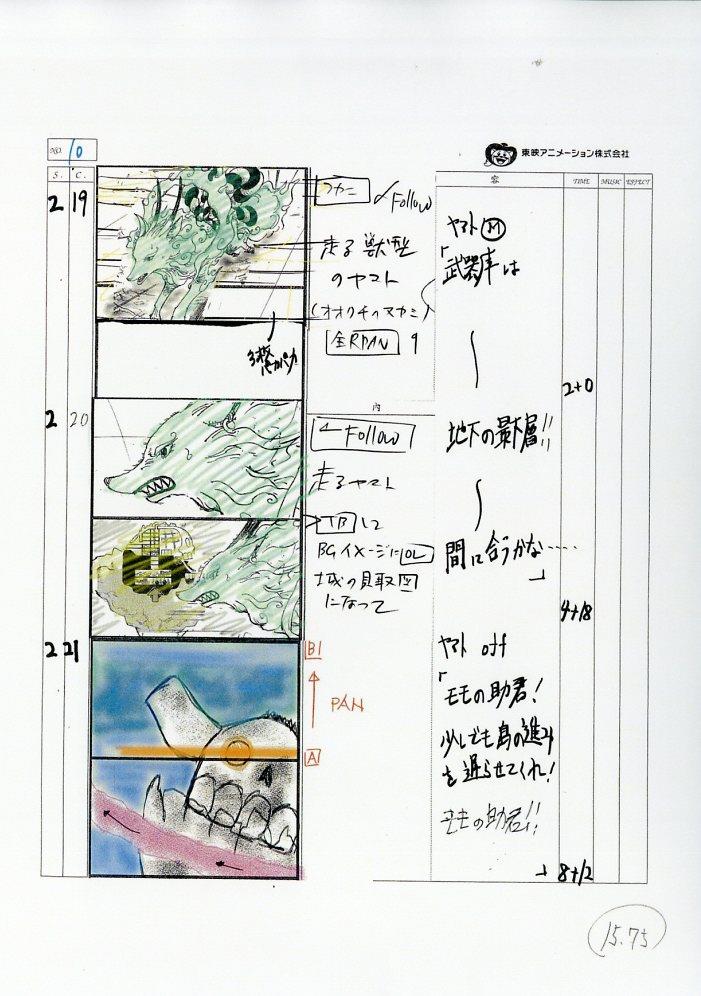 NO. 10
東映アニメーション株式会社
S. C. 容 TIME MUSIC EFFECT
2 19
Follow
走る獣型
のヤマト
(オオクチノマカミ)
全R PAN
ヤマト Ⓜ
「武器庫は
2+0
内
2 20
Follow
走るヤマト
地下の最下層!!
TB して
BGイメージにOL
城の見取図
になって
間に合うかな……
」
4+18
2 21
B1
PAN
A
ヤマト off
「モモの助君!
少しでも島の進み
を遅らせてくれ!
モモの助君!!
」 8+12
15.75